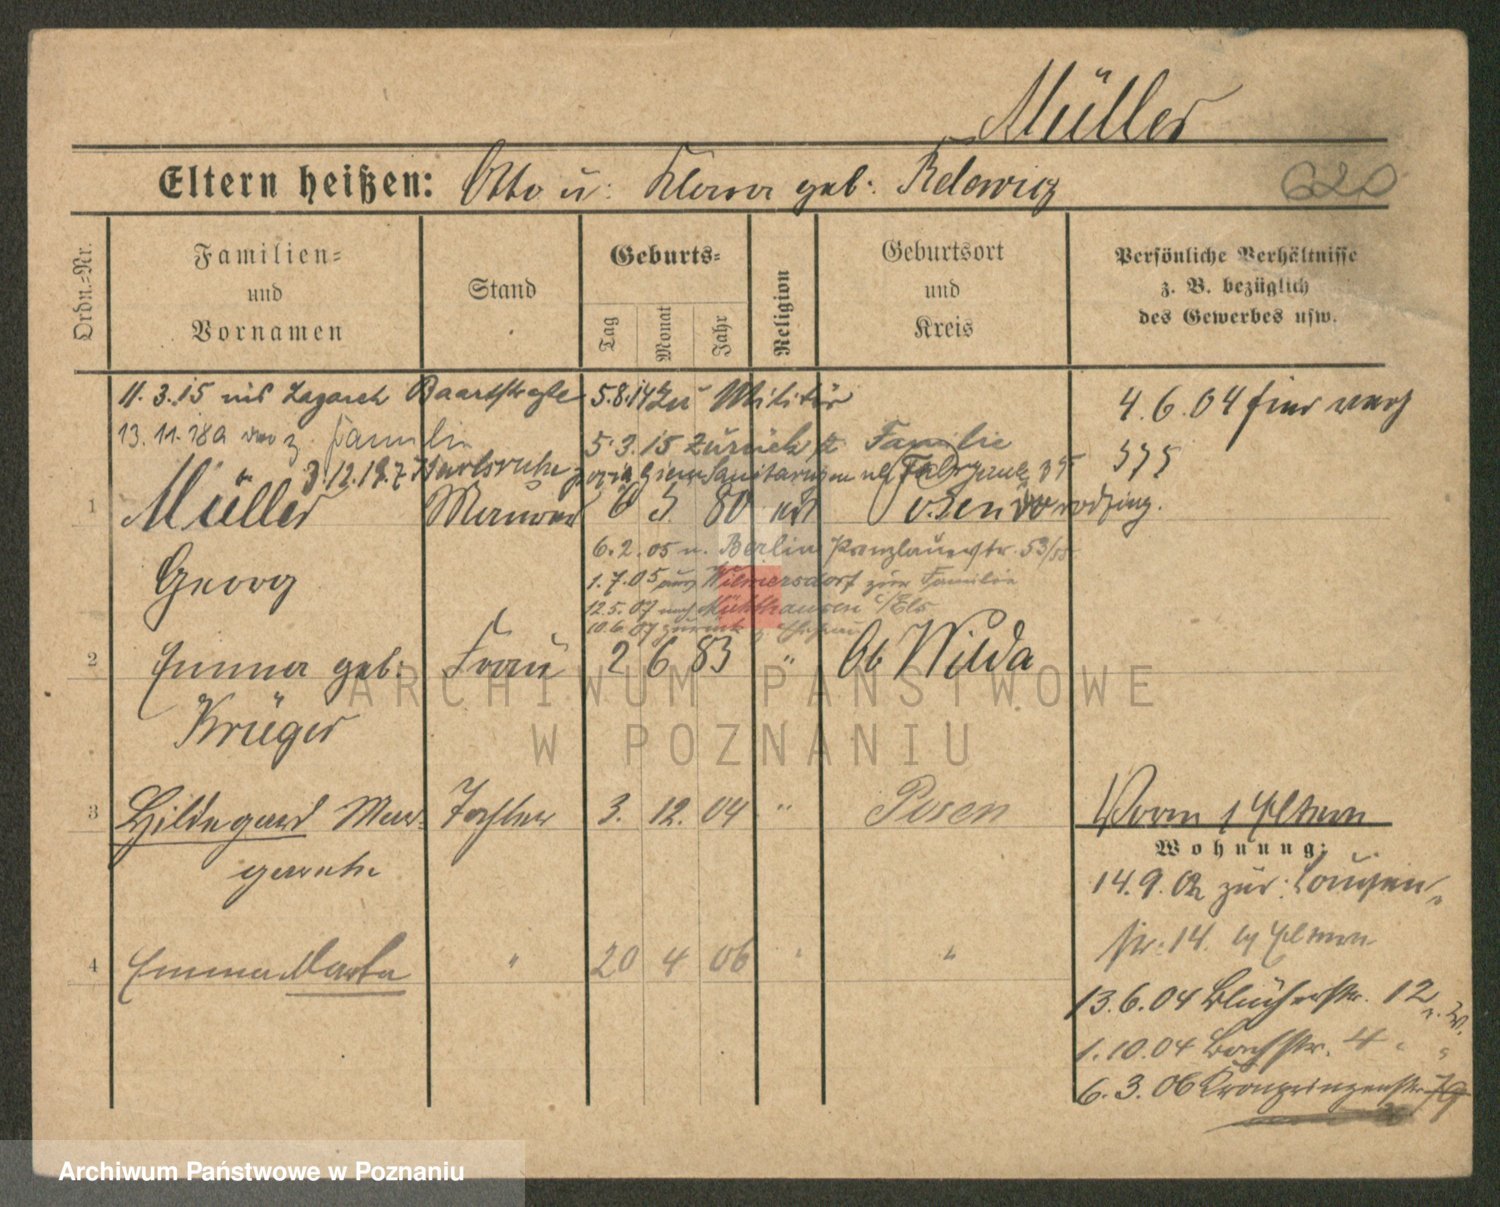 Müller
Eltern heißen: Otto u: Klara geb: Relewicz
620
Ordn.-Nr.
Familien-
und
Vornamen
Stand
Geburts-
Tag
Monat
Jahr
Religion
Geburtsort
und
Kreis
Persönliche Verhältnisse
z. B. bezüglich
des Gewerbes usw.
11. 3. 15 Lazarett 5.8.14 zu Militär
4. 6. 04
13. 11. 18 z. Familie 5. 3. 15 Zurück z. Familie
3. 12. 18. Karlsruhe
375
1 Müller Maurer 6 5 80 Posen
6. 2. 05 n. Berlin Prenzlauerstr. 53/55
Georg
1. 7. 05 aus Wilmersdorf zur Familie
12. 5. 07 nach Mühlhausen i/Els
10. 6. 07 zurück z. Ehefrau
2 Emma geb: Frau 2 6 83 " Ob Wilda
Krüger
3 Hildegard Mar- Tochter 3. 12. 04 " Posen
garethe
Eltern
Wohnung:
14. 9. 02 zur:
str. 14. Eltern
4 Emma Martha " 20 4 06 " "
13. 6. 04 Blücherstr. 12
1. 10. 04 Bachstr. 4 " "
6. 3. 06 Kronprinzenstr. 79
ARCHIWUM PAŃSTWOWE
W POZNANIU
Archiwum Państwowe w Poznaniu